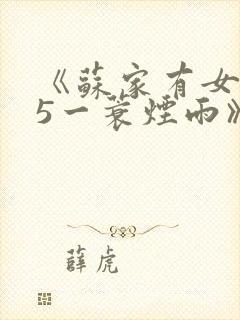 《蘇家有女
5一蓑煙雨》
薛虎